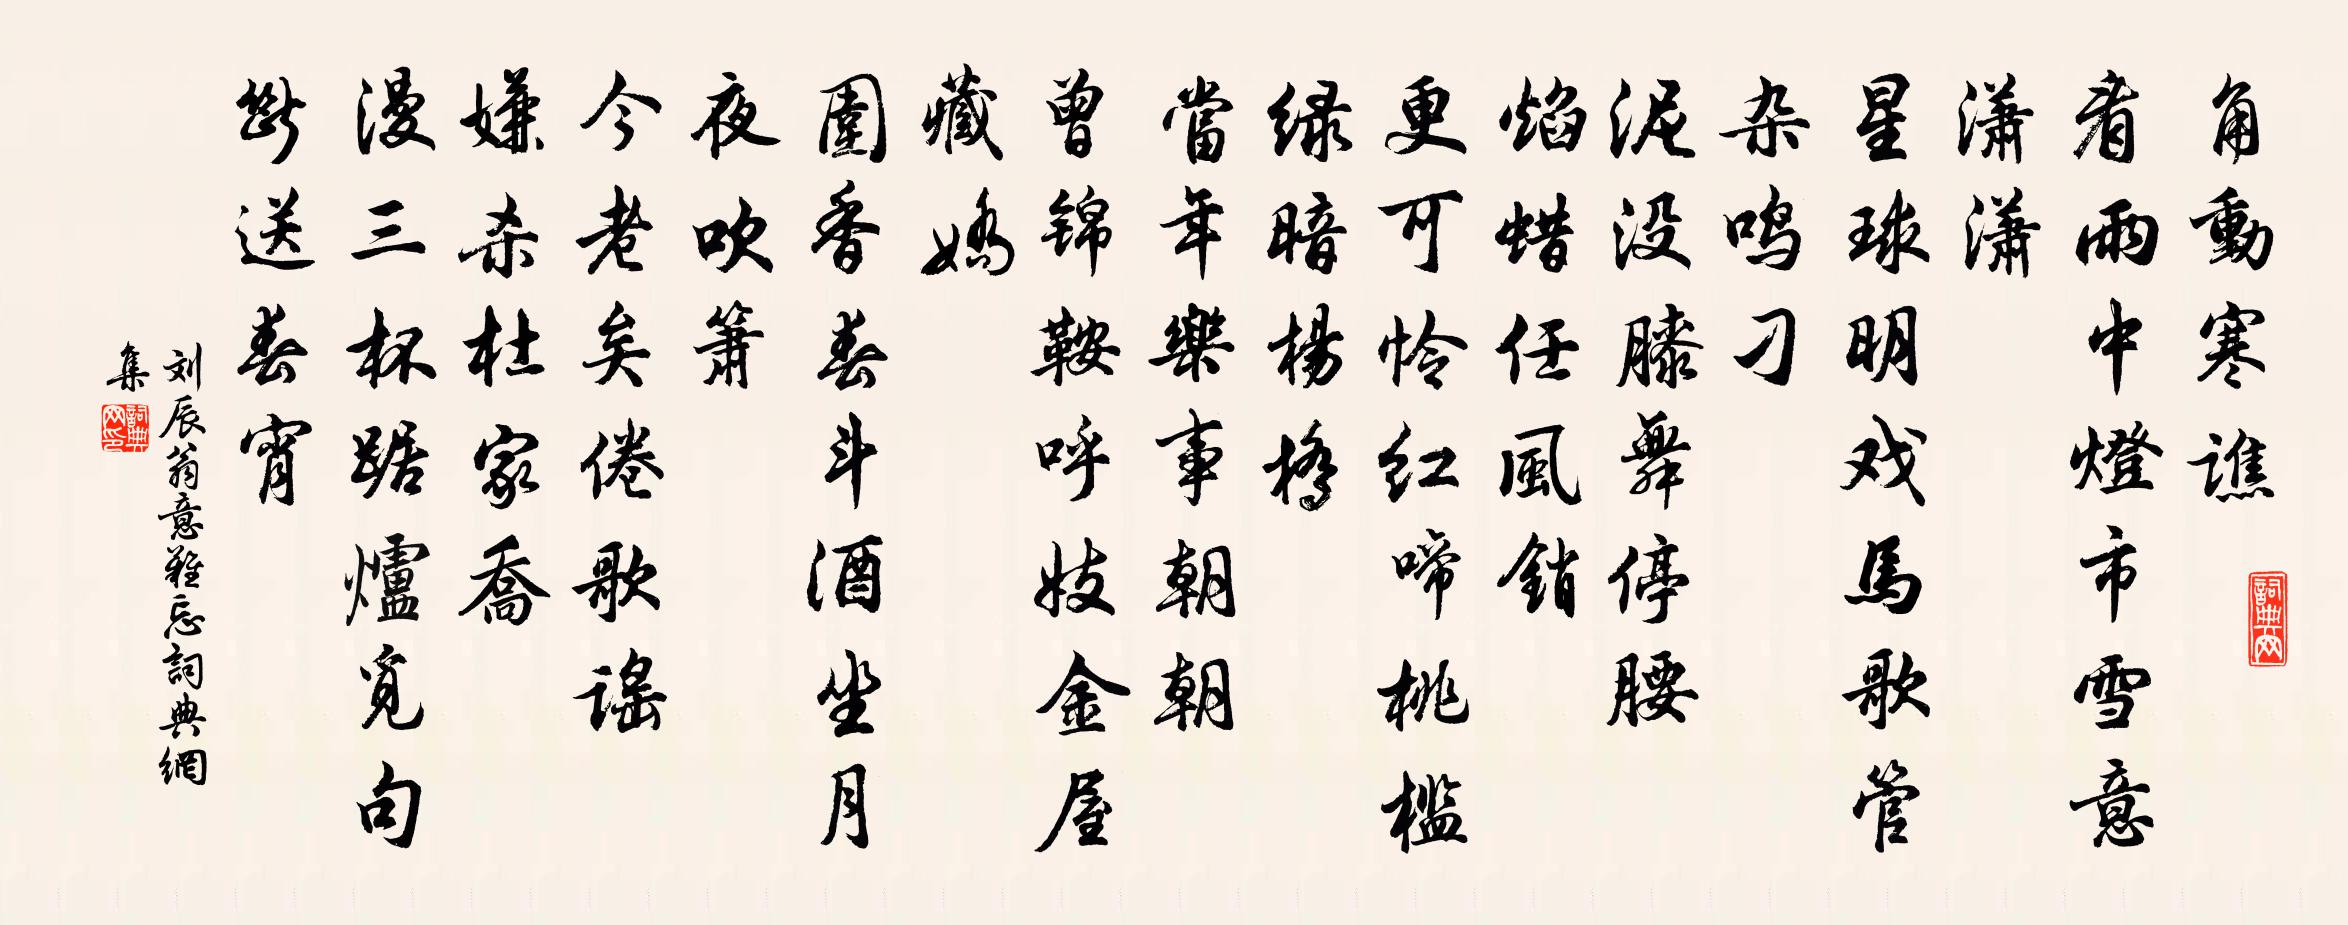 角動寒譙
看雨中燈市雪意
瀟瀟
星球明戏馬歌管
杂鳴刁
泥没膝舞停腰
焰蜡任風銷
更可怜红啼桃槛
绿暗楊橋
當年樂事朝朝
曾锦鞍呼妓金屋
藏嬌
圍香春斗酒坐月
夜吹箫
今老矣倦歌谣
嫌杀杜家喬
漫三杯踞爐觅句
斷送春宵
刘辰翁意難忘詞典網
集
詞典网
詞典网印